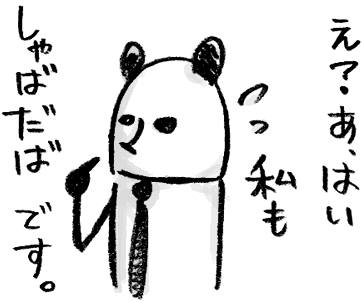 え?あ、はい
私も
しゃばだば です。